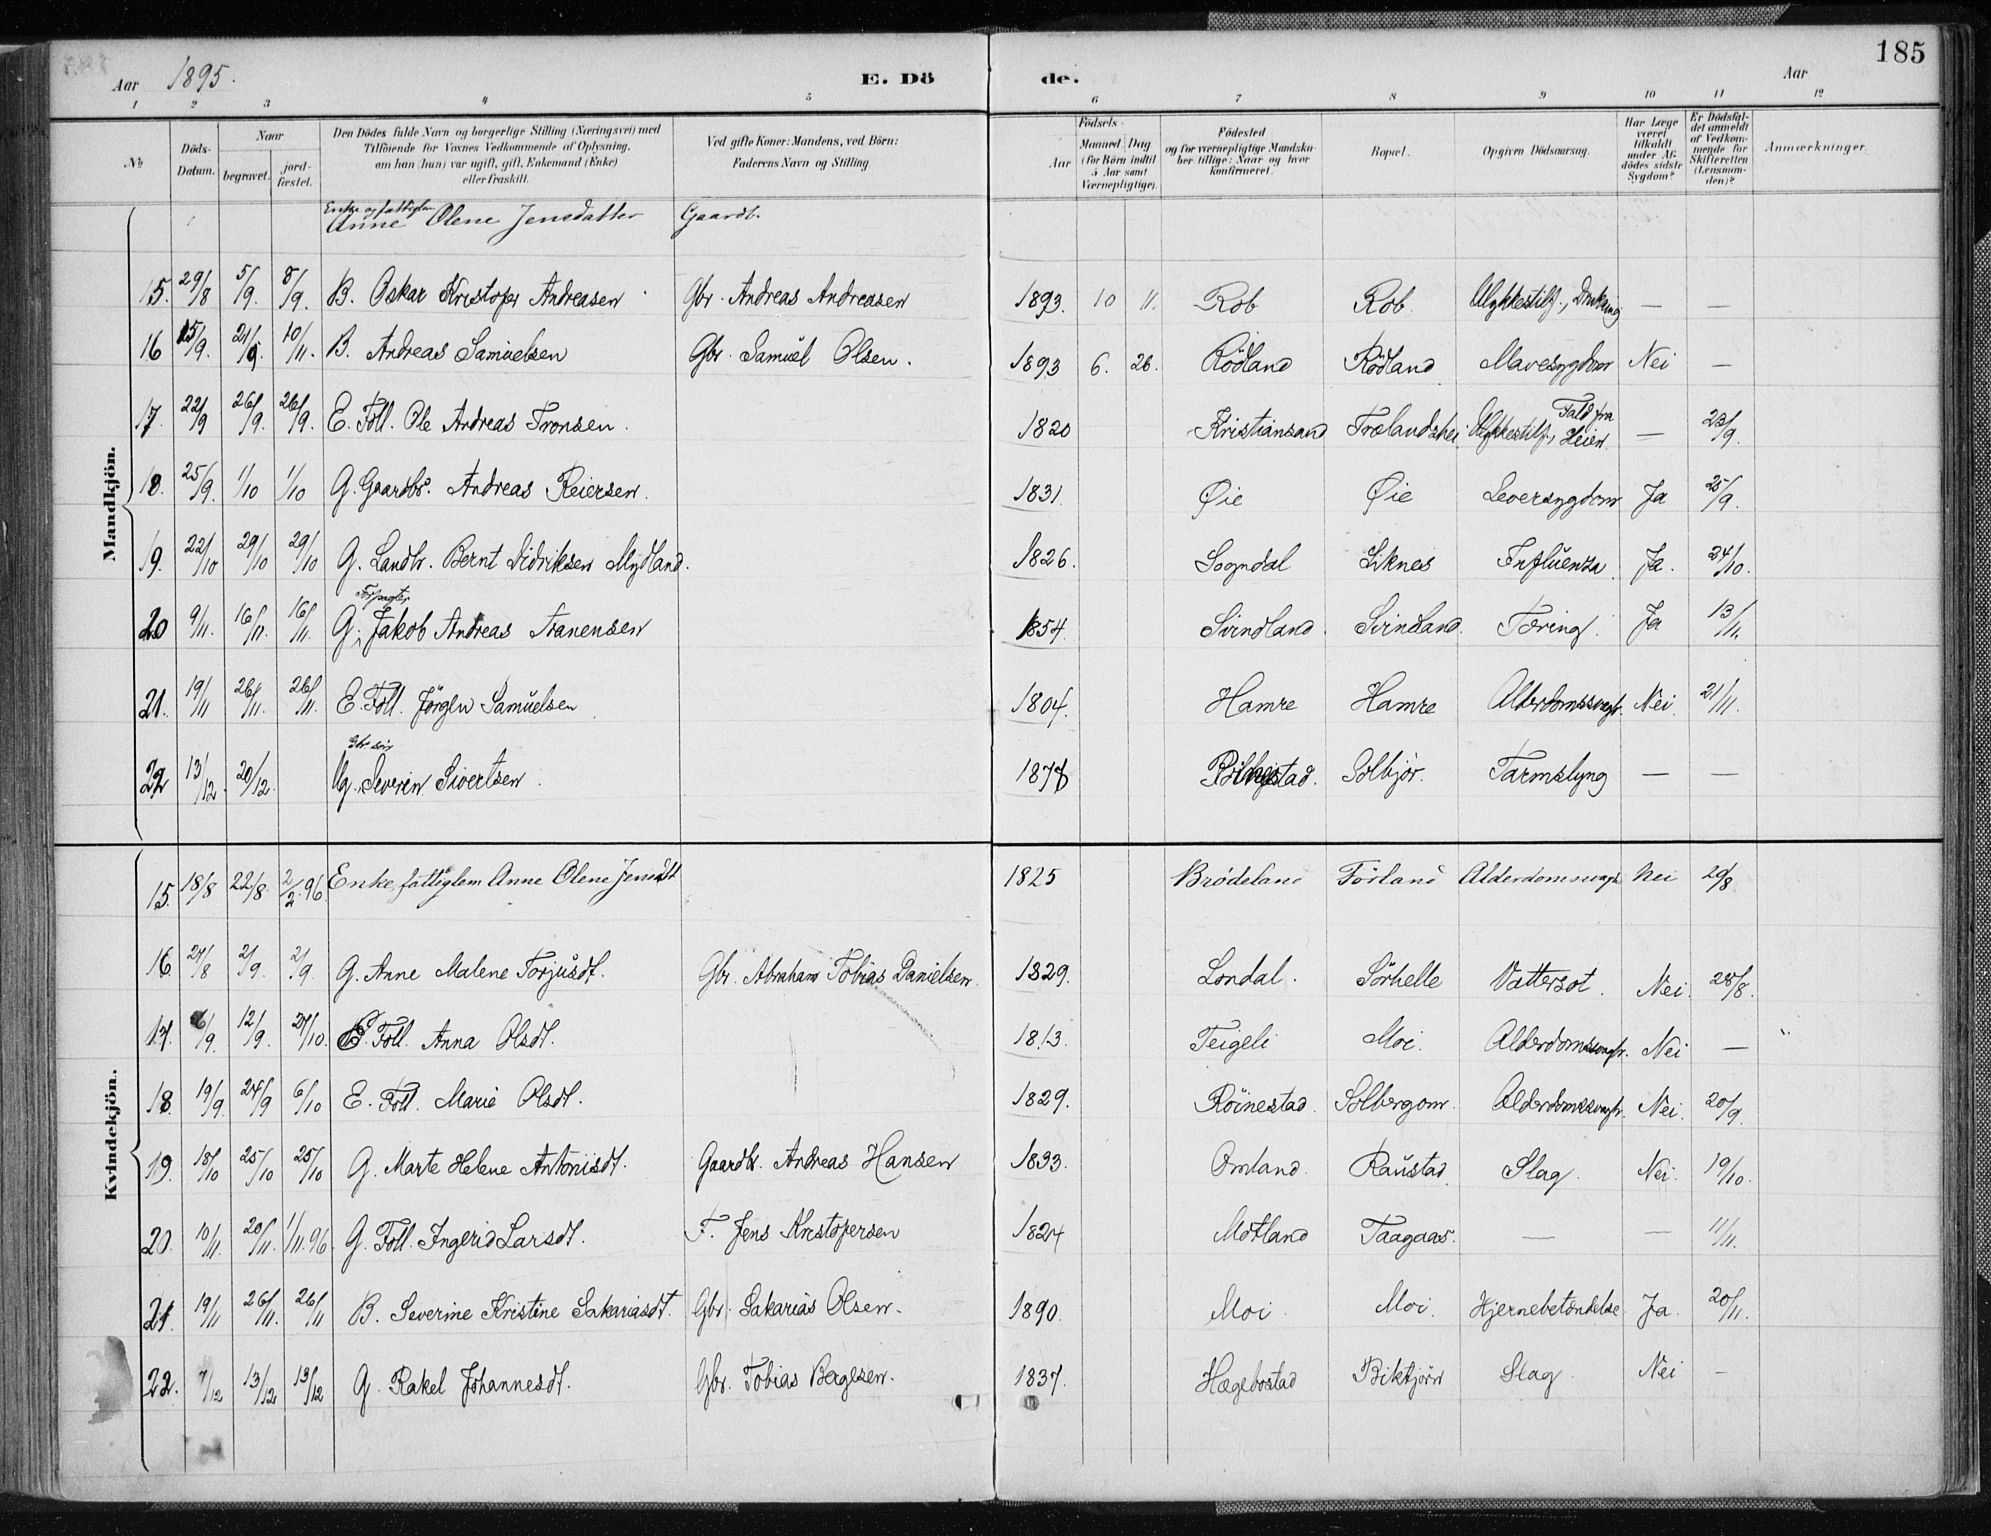 185
Aar 1895. E. Dö de. Aar
1 2 3 4 5 6 7 8 9 10 11 12
No Döds-Datum. Naar begravet. jord-fæstet. Den Dödes fulde Navn og borgerlige Stilling (Næringsvei) med Tilföiende for Voxnes Vedkommende af Oplysning, om han (hun) var ugift, gift, Enkemand (Enke) eller fraskilt. Ved gifte Koner: Mandens, ved Börn: Faderens Navn og Stilling. Födsels- Aar Maaned Dag (for Börn indtil 5 Aar samt Værnepligtige). Födested og for værnepligtige Mandskaber tillige: Naar og hvor konfirmeret. Bopæl. Opgiven Dödsaarsag. Har Læge været tilkaldt under Afdödes sidste Sygdom? Er Dödsfaldet anmeldt af Vedkommende for Skifteretten (Lensmanden)? Anmærkninger.
Mandkjön.
Enke og fattiglem
Anne Olene Jensdatter Gaardb.
15. 29/8 5/9. 8/9. B. Oskar Kristofer Andreasen Gbr. Andreas Andreasen 1893. 10 11. Rob Rob. Ulykkestilf., Drukning — —
16 15/9. 21/9. 10/11. B. Andreas Samuelsen Gbr. Samuel Olsen. 1893 6. 26. Rödland Rödland Mavesygdom Nei —
17. 22/9 26/9. 26/9. E. Föll. Ole Andreas Tronsen. 1820 Kristiansand Trælandshei Ulykkestilf., Fald fra Heien — 23/9.
18. 25/9. 1/10 1/10 G. Gaardbr. Andreas Reiersen. 1831 Øie Øie Leversygdom Ja 25/9.
19. 22/10 29/10 29/10 G. Landh. Bernt Didriksen Mydland. 1826. Sogndal Liknes Influenza Ja. 24/10.
20 9/11. 16/11. 16/11. G. Forpagter Jakob Andreas Tranensen 1854. Svindland. Svindland. Tæring. Ja 13/11.
21. 19/11 26/11. 26/11. E. Föll. Jörgen Samuelsen 1804. Hamre Hamre Alderdomssvagh. Nei. 21/11.
22 13/12 20/12. Ug. Gbr. sön Severin Sivertsen. 1877 Solbjör. Tarmslyng — —
Kvindekjön.
15. 18/8 22/8. 2/2.96. Enke, fattiglem Anne Olene Jensdt 1825 Brödeland Förland Alderdomssvagh. Nei 20/8
16. 27/8 2/9. 2/9. G. Anne Malene Torjusdt. Gbr. Abraham Tobias Danielsen. 1829. Londal. Sörhelle Vattersot. Nei. 28/8.
17. 6/9. 12/9. 27/10. E. Föll. Anna Olsdt. 1813. Teigeli Moi. Alderdomssvagh. Nei —
18. 19/9. 24/9 6/10 E. Föll. Marie Olsdt. 1829. Röinestad. Solbergom. Alderdomssvagh. Nei. 20/9.
19. 18/10 25/10 25/10 G. Marte Helene Antonisdt. Gaardb. Andreas Hansen 1833. Omland. Raustad. Slag. Nei. 19/10.
20. 10/11. 20/11. 1/11.96. G. Föll. Ingerid Larsdt. F. Jens Kristofersen 1824 Motland Taagaas. — — 11/11.
21. 19/11 26/11. 26/11 B. Severine Kristine Sakariasdt. Gbr. Sakarias Olsen. 1890. Moi Moi. Hjernebetændelse. Ja. 20/11.
22. 7/12 13/12 13/12 G. Rakel Johannesdt. Gbr. Tobias Bagesen. 1837. Hægebostad Biktjörn Slag. Nei —